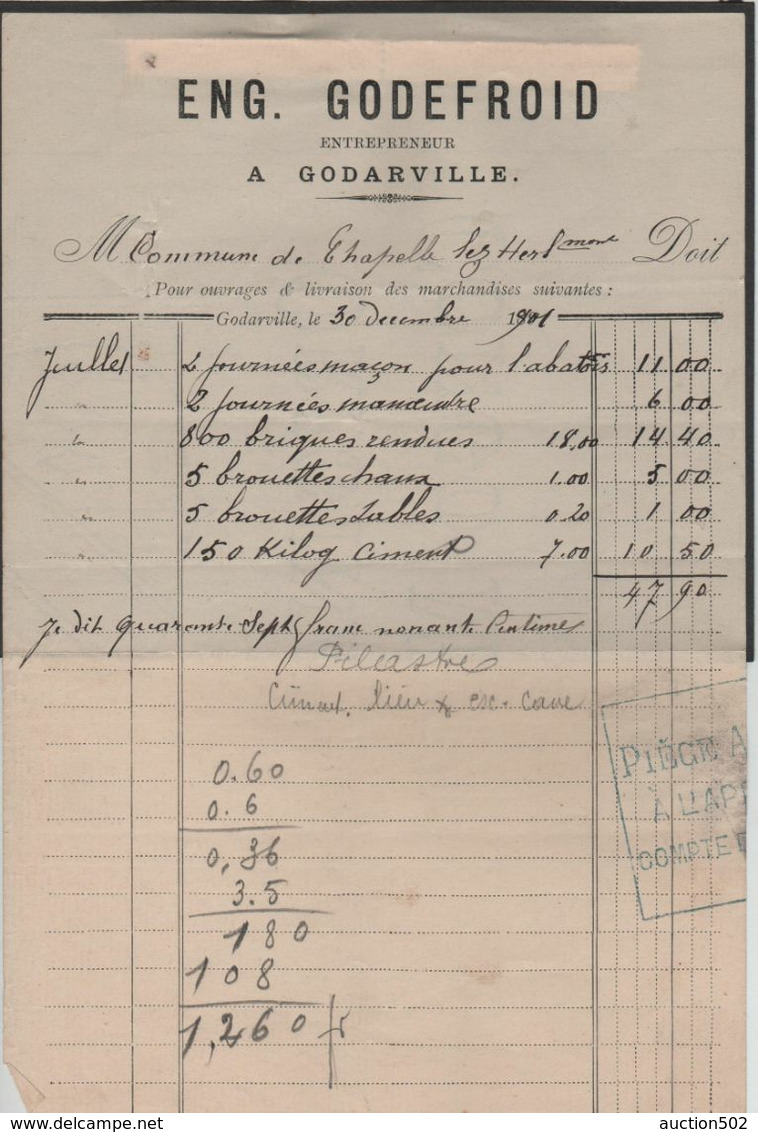 ENG. GODEFROID
ENTREPRENEUR
A GODARVILLE.
M Commune de Chapelle lez Herlmont Doit
Pour ouvrages & livraison des marchandises suivantes :
Godarville, le 30 decembre 1901
Juillet 2 journées maçon pour l'abatoir 11 00
" 2 journées manœuvre 6 00
" 800 briques rendues 18,00 14 40
" 5 brouettes chaux 1.00 5 00
" 5 brouettes sables 0.20 1 00
" 150 Kilog ciment 7.00 10 50
47 90
Je dit quarante Sept franc nonante Centimes
Pilastre
Ciment.
PIÈGE A
À L'AP
COMPTE
0.60
0.6
0,36
3.5
180
108
1,260
auction502